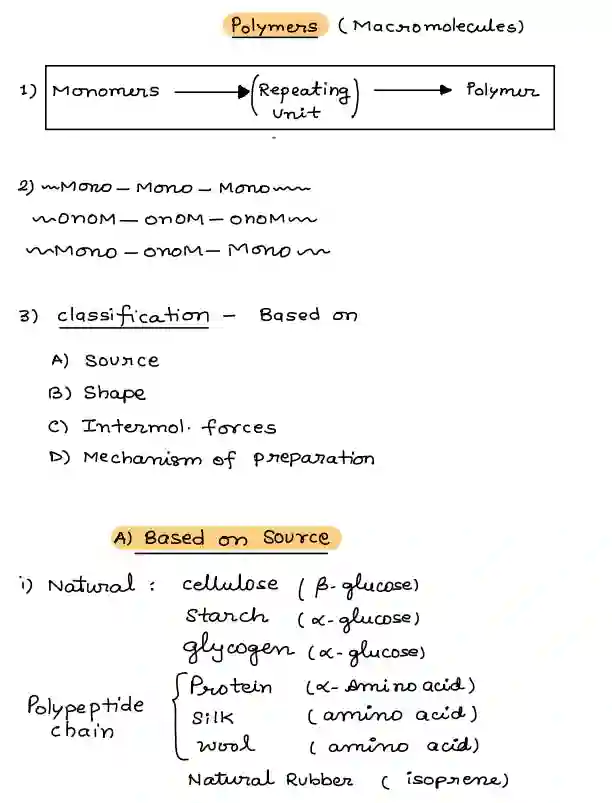 Polymers (Macromolecules)
1) Monomers → (Repeating unit) → Polymer
2) Mono – Mono – Mono
onoM – onoM – onoM
Mono – onoM – Mono
3) classification – Based on
A) Source
B) Shape
C) Intermol. forces
D) Mechanism of preparation
A) Based on Source
i) Natural : cellulose (β-glucose)
Starch (α-glucose)
glycogen (α-glucose)
Polypeptide chain { Protein (α-Amino acid)
Silk (amino acid)
wool (amino acid)
Natural Rubber (isoprene)